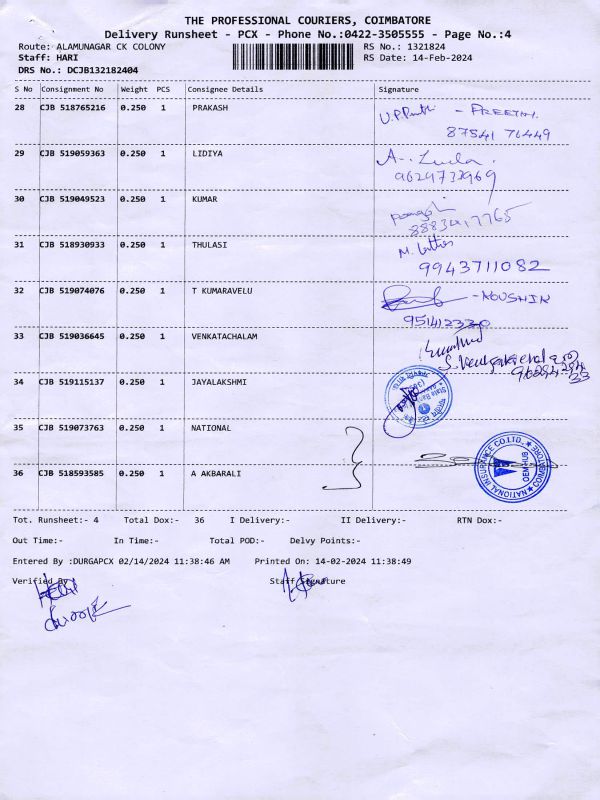 THE PROFESSIONAL COURIERS, COIMBATORE
Delivery Runsheet - PCX - Phone No.:0422-3505555 - Page No.:4
Route: ALAMUNAGAR CK COLONY RS No.: 1321824
Staff: HARI RS Date: 14-Feb-2024
DRS No.: DCJB132182404
S No Consignment No Weight PCS Consignee Details Signature
28 CJB 518765216 0.250 1 PRAKASH
- PREETHI
87541 76449
29 CJB 519059363 0.250 1 LIDIYA
9629733969
30 CJB 519049523 0.250 1 KUMAR
8883417765
31 CJB 518930933 0.250 1 THULASI
9943711082
32 CJB 519074076 0.250 1 T KUMARAVELU
- KOUSHIK
951412330
33 CJB 519036645 0.250 1 VENKATACHALAM
34 CJB 519115137 0.250 1 JAYALAKSHMI
35 CJB 519073763 0.250 1 NATIONAL
NATIONAL INSURANCE CO. LTD. COIMBATORE
OEM HUB
36 CJB 518593585 0.250 1 A AKBARALI
Tot. Runsheet:- 4 Total Dox:- 36 I Delivery:- II Delivery:- RTN Dox:-
Out Time:- In Time:- Total POD:- Delvy Points:-
Entered By :DURGAPCX 02/14/2024 11:38:46 AM Printed On: 14-02-2024 11:38:49
Verified By Staff Signature